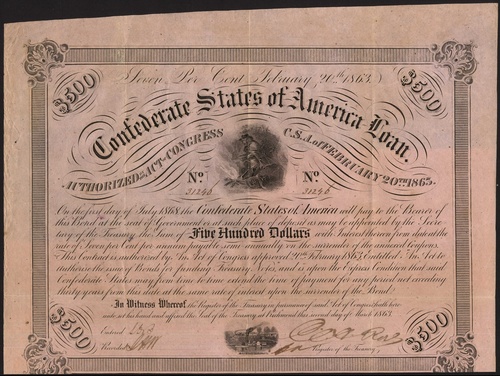 $500
$500
Seven Per Cent February 20th 1863.
Confederate States of America Loan.
AUTHORIZED by ACT of CONGRESS
C.S.A. of FEBRUARY 20TH 1863.
No
No
31246
31246
On the first day of July 1868 the Confederate States of America will pay to the Bearer of
this Bond at the seat of Government or at such place of deposit as may be appointed by the Secre-
tary of the Treasury the Sum of Five Hundred Dollars with Interest thereon from date at the
rate of Seven per Cent per annum payable semi annually on the surrender of the annexed Coupons.
This Contract is authorized by An Act of Congress approved 20th February 1863 Entitled An Act to
authorise the issue of Bonds for funding Treasury Notes, and is upon the Express Condition that said
Confederate States may from time to time extend the time of payment for any period not exceeding
thirty years from this date at the same rate of interest upon the surrender of this Bond.
In Witness Whereof, the Register of the Treasury in pursuance of said Act of Congress hath here
unto set his hand and affixed the Seal of the Treasury at Richmond this second day of March 1863.
Entered
Recorded
Register of the Treasury,
$500
$500